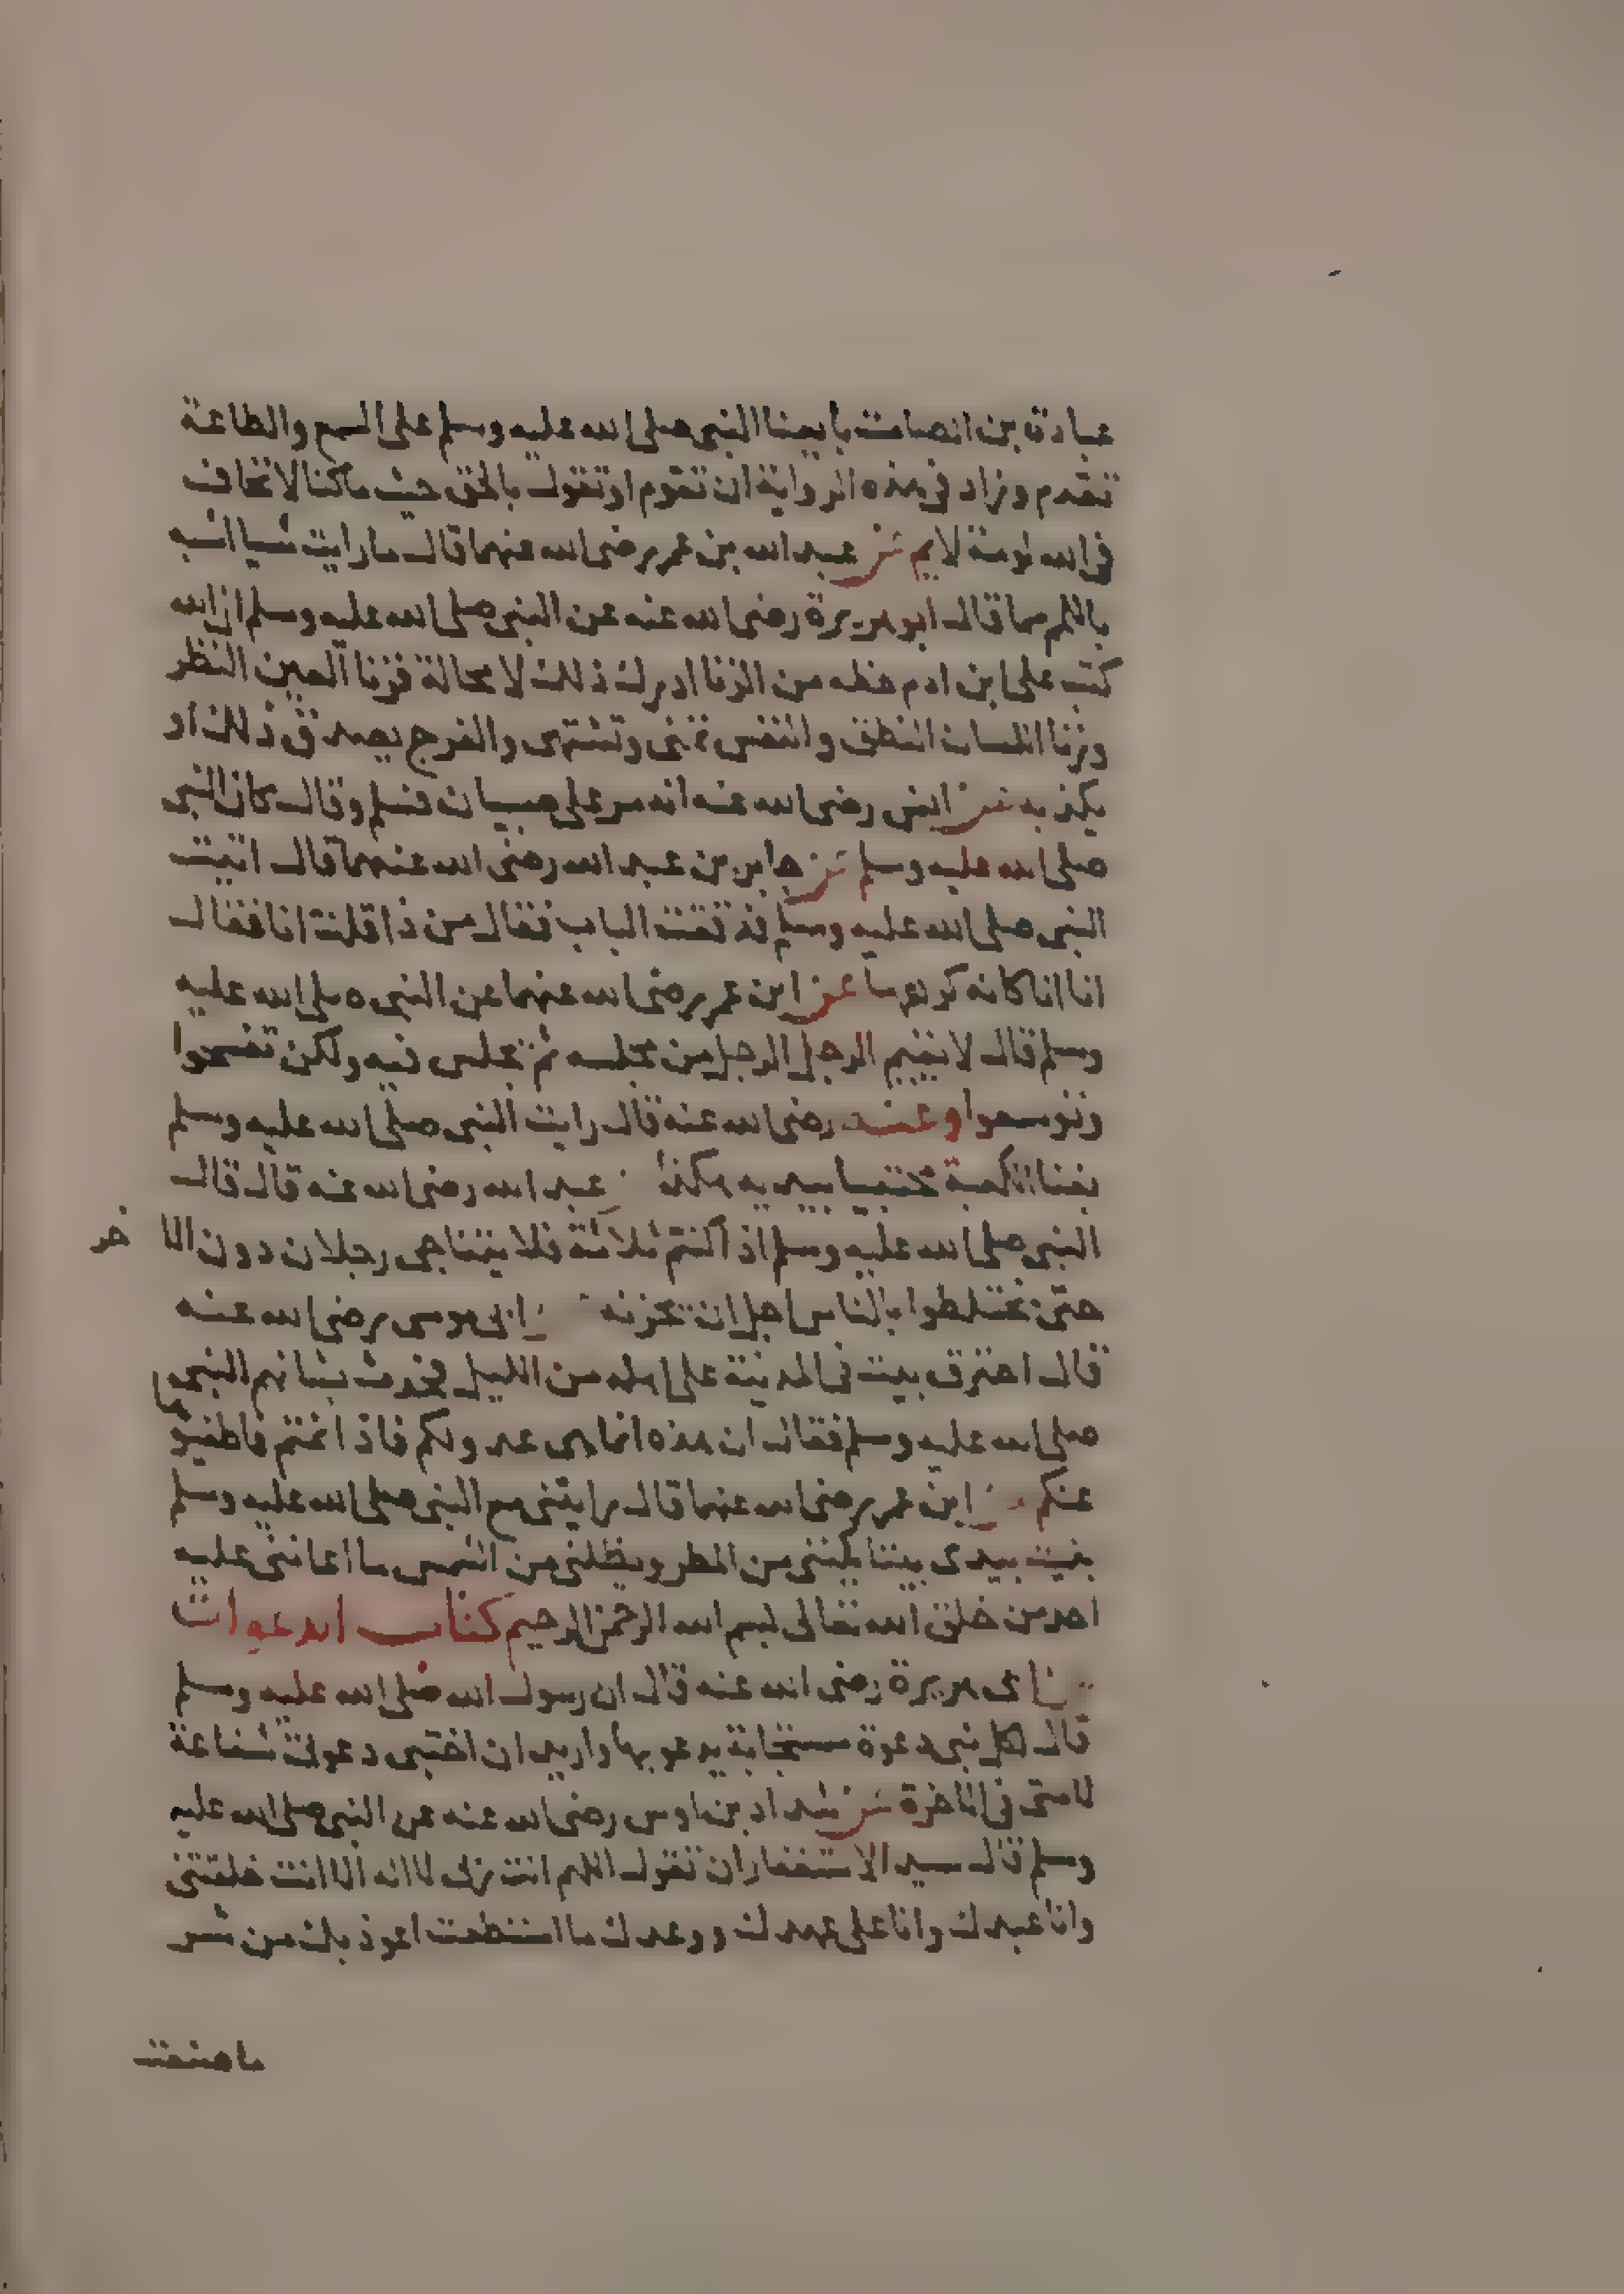 عبادة بن الصامت بايعنا النبى صلى الله عليه وسلم على السمع والطاعة
تقدم وزاد فى هذه الرواية ان نقوم او نقول بالحق حيث ما كنا لا نخاف
فى الله لومة لايم عن عبد الله بن عمر رضى الله عنهما قال ما رايت شيا اشبه
باللمم مما قال ابو هريرة رضى الله عنه عن النبى صلى الله عليه وسلم ان الله
كتب على ابن ادم حظه من الزنا ادرك ذلك لا محالة فزنا العين النظر
وزنا اللسان النطق والنفس تمنى وتشتهى والفرج يصدق ذلك او
يكذبه عن انس رضى الله عنه انه مر على صبيان فسلم وقال كان النبى
صلى الله عليه وسلم عن جابر بن عبد الله رضى الله عنهما قال اتيت
النبى صلى الله عليه وسلم فدققت الباب فقال من ذا قلت انا فقال
انا انا كانه كرهها عن ابن عمر رضى الله عنهما عن النبى صلى الله عليه
وسلم قال لا يقيم الرجل الرجل من مجلسه ثم يجلس فيه ولكن تفسحوا
وتوسعوا وعنه رضى الله عنه قال رايت النبى صلى الله عليه وسلم
بفنا الكعبة محتبيا بيديه هكذا عن عبد الله رضى الله عنه قال قال
النبى صلى الله عليه وسلم اذا كنتم ثلاثة فلا يتناجى رجلان دون الاخر
حتى تختلطوا بالناس اجل ان تحزنه عن ابى موسى رضى الله عنه
قال احترق بيت فى المدينة على اهله من الليل فحدث بشانهم النبى
صلى الله عليه وسلم فقال ان هذه انما هى عدو لكم فاذا نمتم فاطفيوها
عنكم عن ابن عمر رضى الله عنهما قال رايتنى مع النبى صلى الله عليه وسلم
بنيت بيدى بيتا يكننى من المطر ويظلنى من الشمس ما اعاننى عليه
احد من خلق الله تعالى بسم الله الرحمن الرحيم كتاب الدعوات
عن ابى هريرة رضى الله عنه قال ان رسول الله صلى الله عليه وسلم
قال لكل نبى دعوة مستجابة يدعو بها واريد ان اختبى دعوتى شفاعة
لامتى فى الاخرة عن شداد بن اوس رضى الله عنه عن النبى صلى الله عليه
وسلم قال سيد الاستغفار ان تقول اللهم انت ربى لا اله الا انت خلقتنى
وانا عبدك وانا على عهدك ووعدك ما استطعت اعوذ بك من شر
ما صنعت